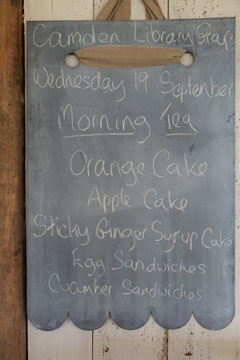 Camden Library Group
Wednesday 19 September
Morning Tea
Orange Cake
Apple Cake
Sticky Ginger Syrup Cake
Egg Sandwiches
Cucumber Sandwiches